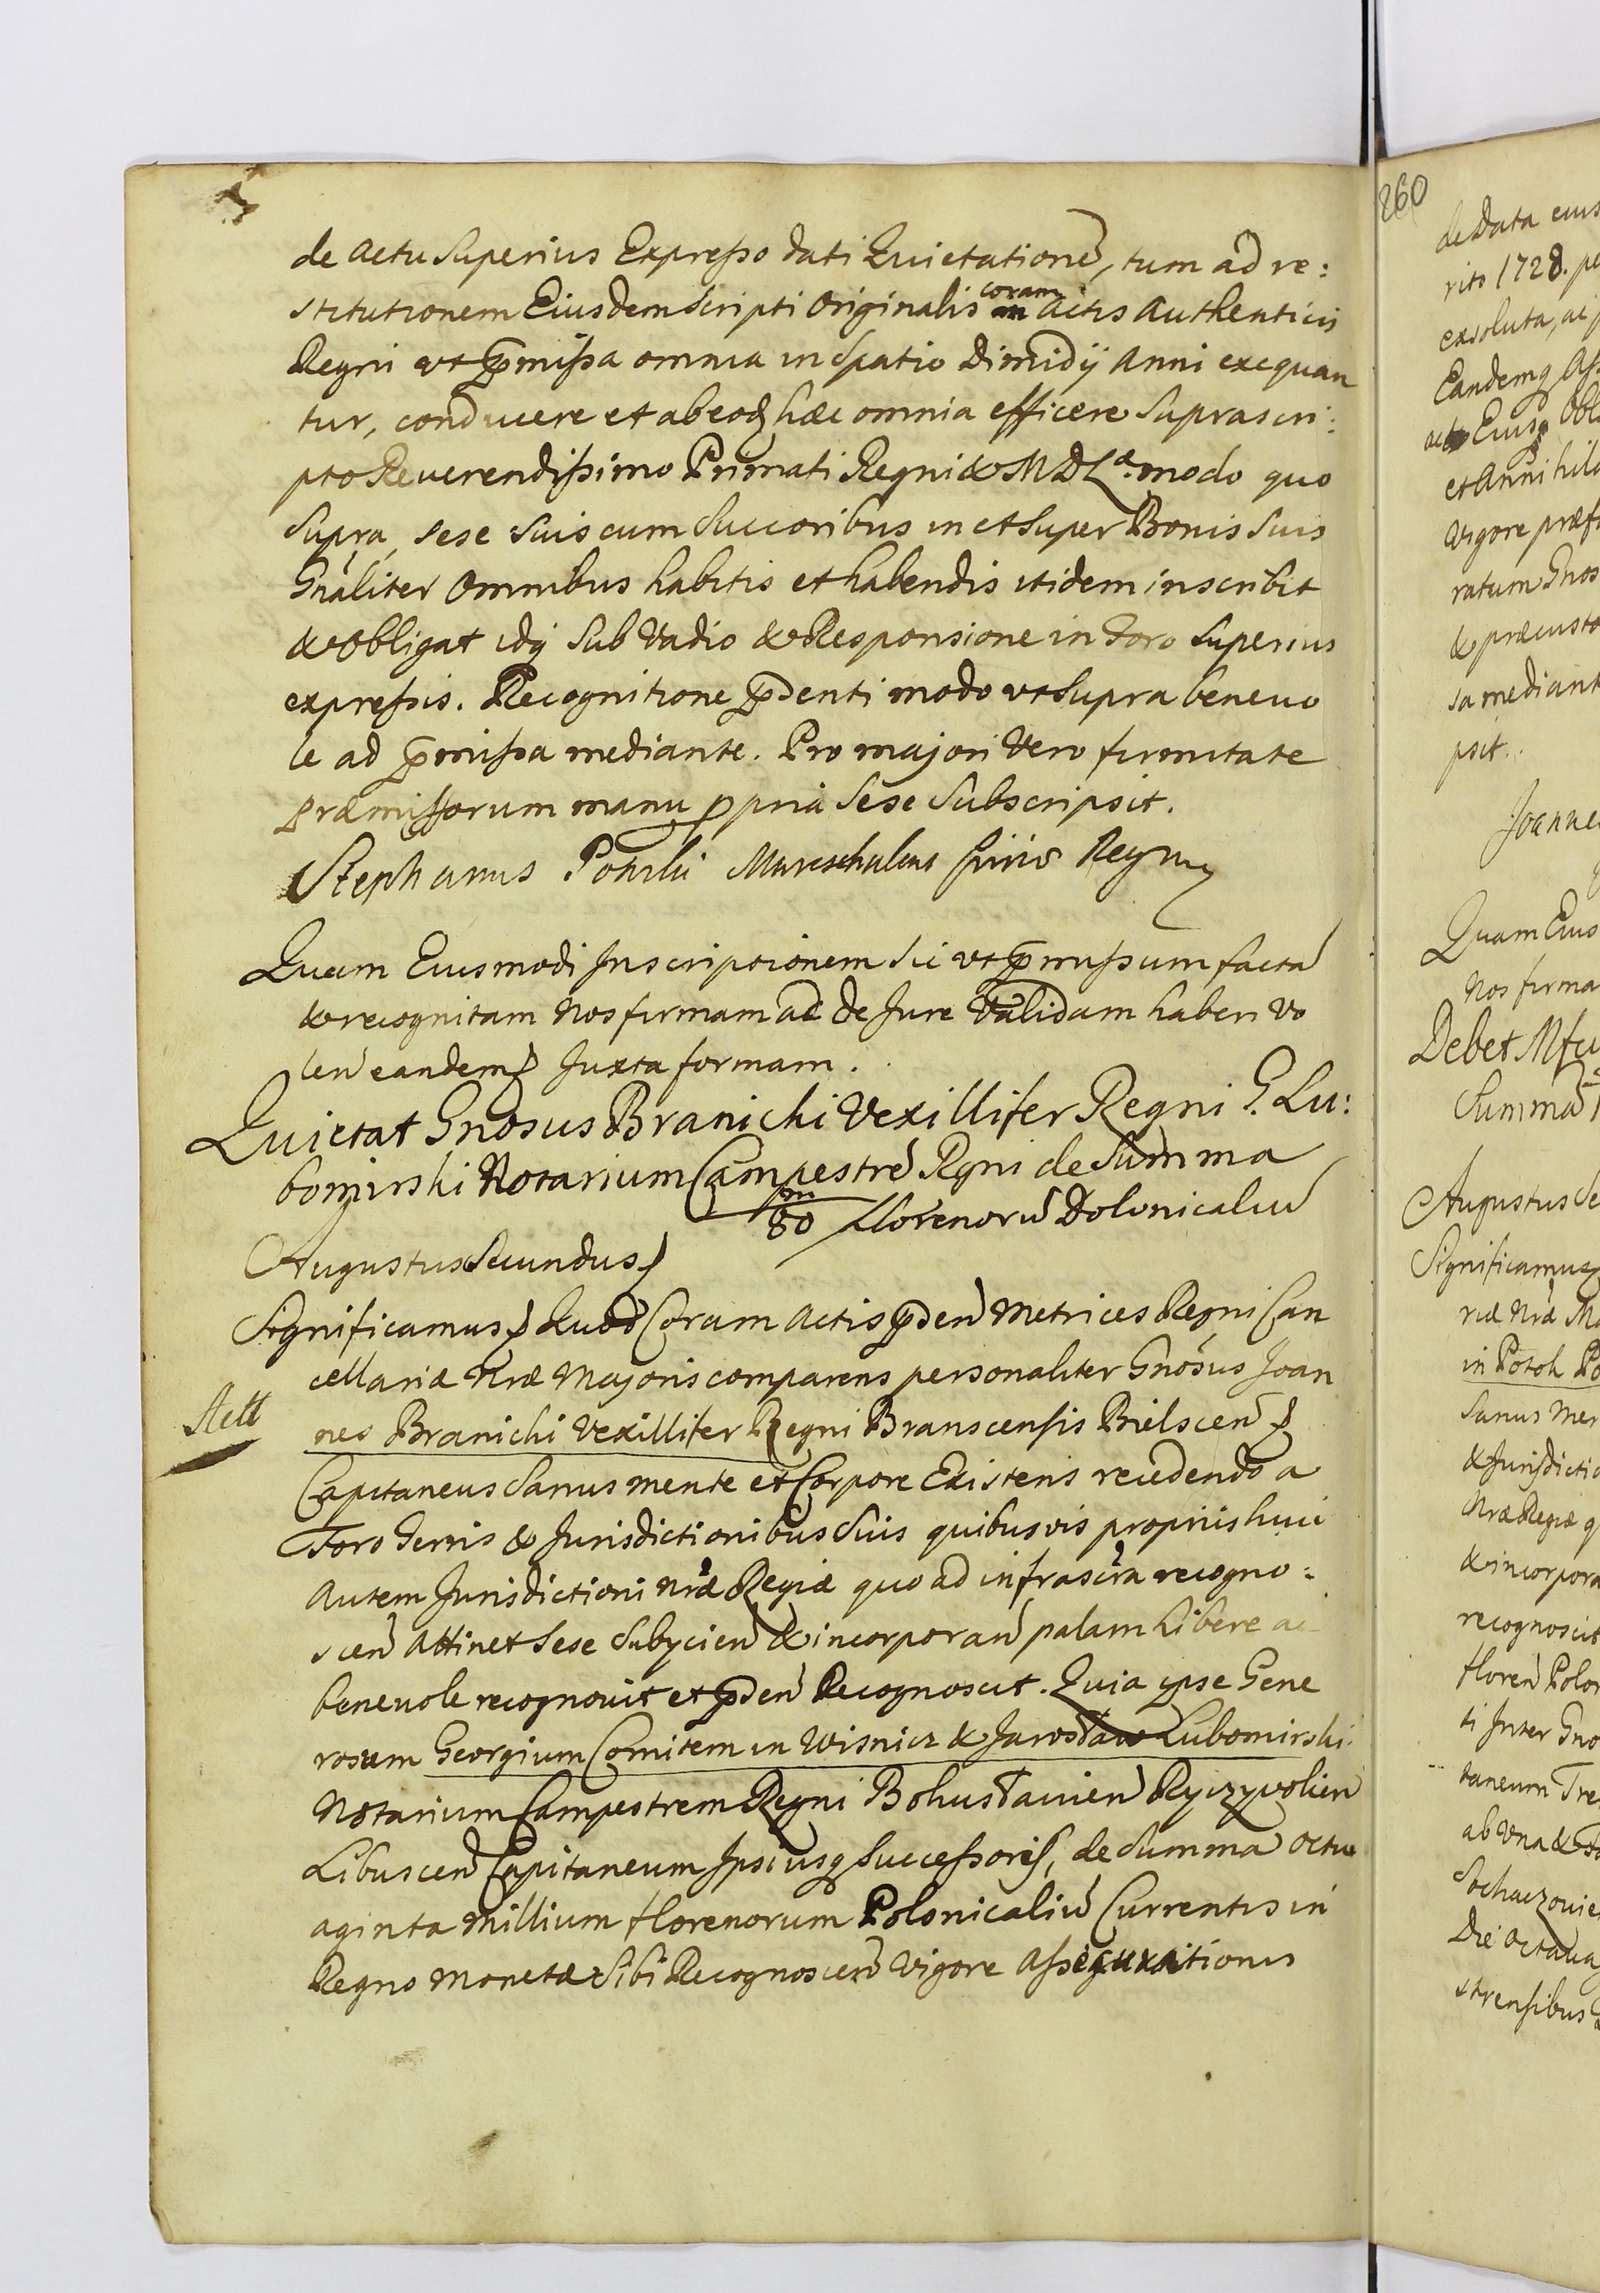 de actu superius Expresso dati Quietatione, tum ad re:
stitutionem Eiusdem scripti Originalis coram actis authenticis
Regni ut pmissa omnia in spatio Dimidij Anni exequan
tur, conducere et ab eodq haec omnia efficere suprascri:
pto Reverendissimo Primati Regni & M D L a modo quo
supra, sese suis cum succoribus in et super Bonis suis
Gnaliter omnibus habitis et habendis itidem inscribit
& obligat idq sub vadio & Responsione in Foro superius
expressis. Recognitione pdenti modo ut supra benevo
le ad pmissa mediante. Pro majori vero firmitate
praemissorum manu ppria sese subscripsit.
Stephanus Potocki Mareschalcus Regni
Quam Eiusmodi Inscripcionem sic ut pmissum facta
& recognitam Nos firmam ac de Jure validam haberi vo
len eandem Juxta formam.
Quietat Gnosus Branicki Vexillifer Regni G. Lu:
bomirski Notarium Campestre Regni de Summa
m
80 florenoru Polonicaliu
Augustus Secundus
Significamus Quod Coram Actis pden Metrices Regni Can
cellariae Nrae Majoris comparens personaliter Gnosus Joan
Actt
nes Branicki Vexillifer Regni Branscensis Bielscen
Capitaneus Sanus mente et Corpore Existens recedendo a
Foro Terris & Jurisdictionibus suis quibusvis propriis huic
autem Jurisdictioni nrae Regiae quo ad infrascra recogno:
scen attinet sese subycien & incorporan palam libere ac
benevole recognovit et pden Recognoscit. Quia ipse Gene
rosum Georgium Comitem in Wisnicz & Jaroslaw Lubomirski
Notarium Campestrem Regni Bohuslavien Ryczyvolien
Libuscen Capitaneum Ipsiusq Successores, de Summa octu
aginta millium florenorum Polonicaliu Currentis in
Regno monetae sibi Recognoscen Vigore Assequrationis
260
de Data eius
rito 1728. pe
exsoluta, ac
Eandemq
Eius
et Anni hil
vigore praef
ratum Gnos
& praecusto
sa mediant
psit.
Joanne
Quam Eius
Nos firma
Debet
Summa
Augustus Se
Significamus
riae Nrae Ma
in Potok Po
Sanus Men
& Jurisdictio
Nrae Regiae q
& incorpora
recognoscit
floren Polon
ti Inter Gno
taneum Tre
ab una &
Sochaczovie
Die octava
strensibus